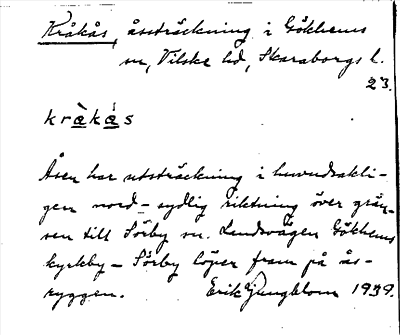 Kråkås, åssträckning i Gökhems
sn, Vilske hd, Skaraborgs l.
23.
kràkås
Åsen har utsträckning i huvudsakli-
gen nord-sydlig riktning över grän-
sen till Sörby sn. Landsvägen Gökhems
kyrkby – Sörby löper fram på ås-
ryggen. Erik Ljungblom 1939.